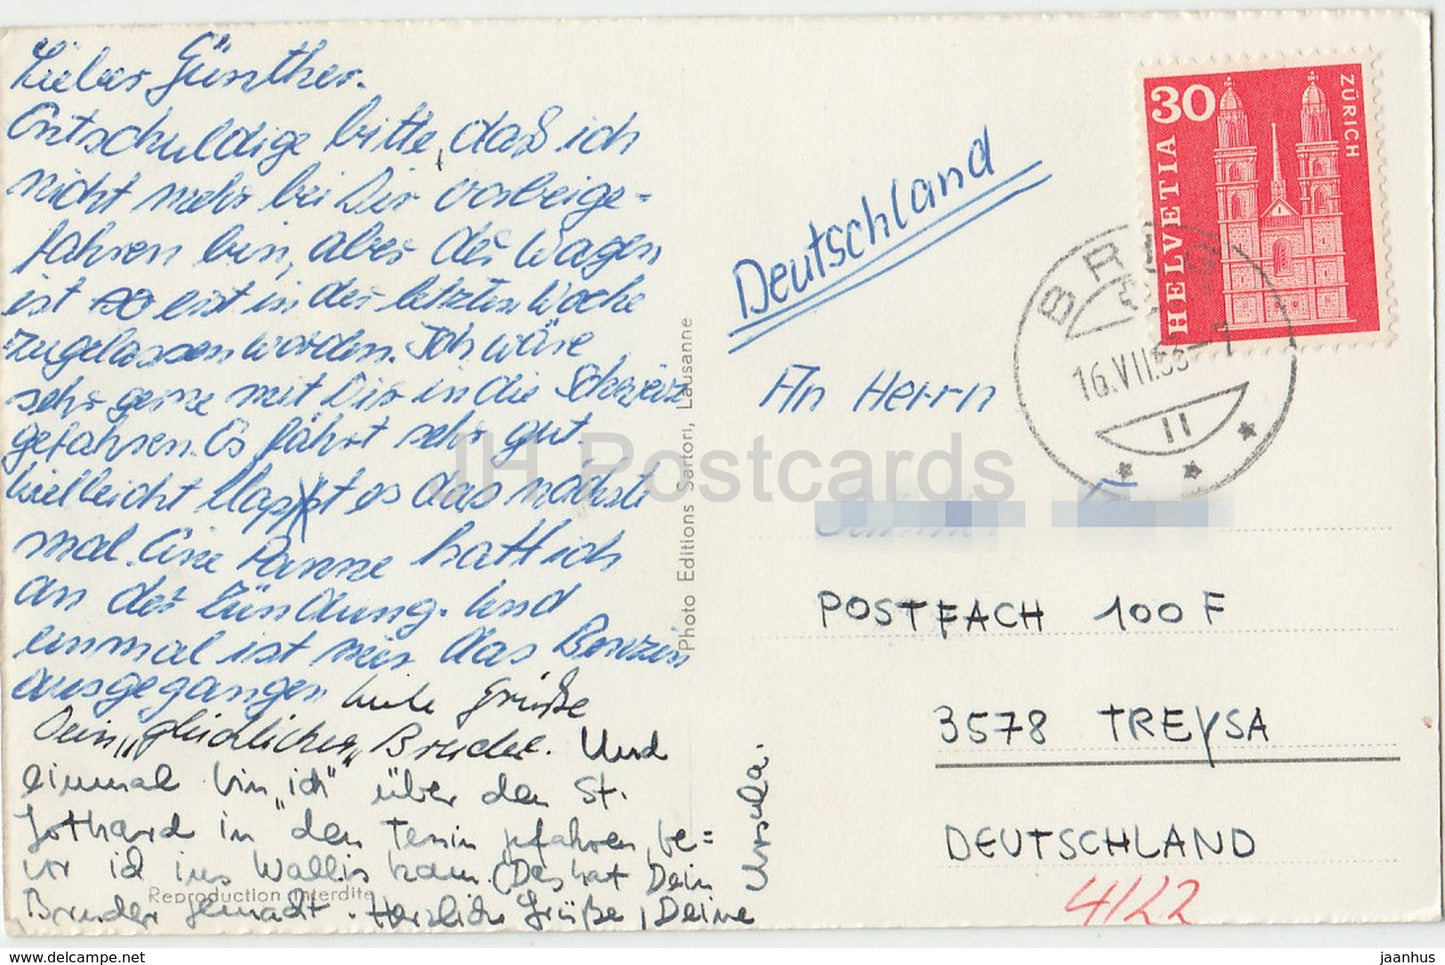 Lieber Günther.
Entschuldige bitte, daß ich
nicht mehr bei Dir vorbeige-
fahren bin, aber der Wagen
ist erst in der letzten Woche
zugelassen worden. Ich wäre
sehr gerne mit Dir in die Schweiz
gefahren. Es fährt sehr gut.
Vielleicht klappt es das nächste
mal. Eine Panne hatte ich
an der Zündung. Und
einmal ist mir das Benzin
ausgegangen
Viele Grüße
Dein „glücklicher„ Bruder. Und
einmal bin „ich" über den St.
Gotthard in den Tessin gefahren, be=
vor ich ins Wallis kam. (Das hat Dein
Bruder gemacht. Herzliche Grüße, Deine
Ursula.
Reproduction interdite
Photo Editions Sartori, Lausanne
Deutschland
HELVETIA 30
ZÜRICH
BRIG
16.VII.
An Herrn
POSTFACH 100 F
3578 TREYSA
DEUTSCHLAND
4/22
JH Postcards
hip.new.cards
jaanhus